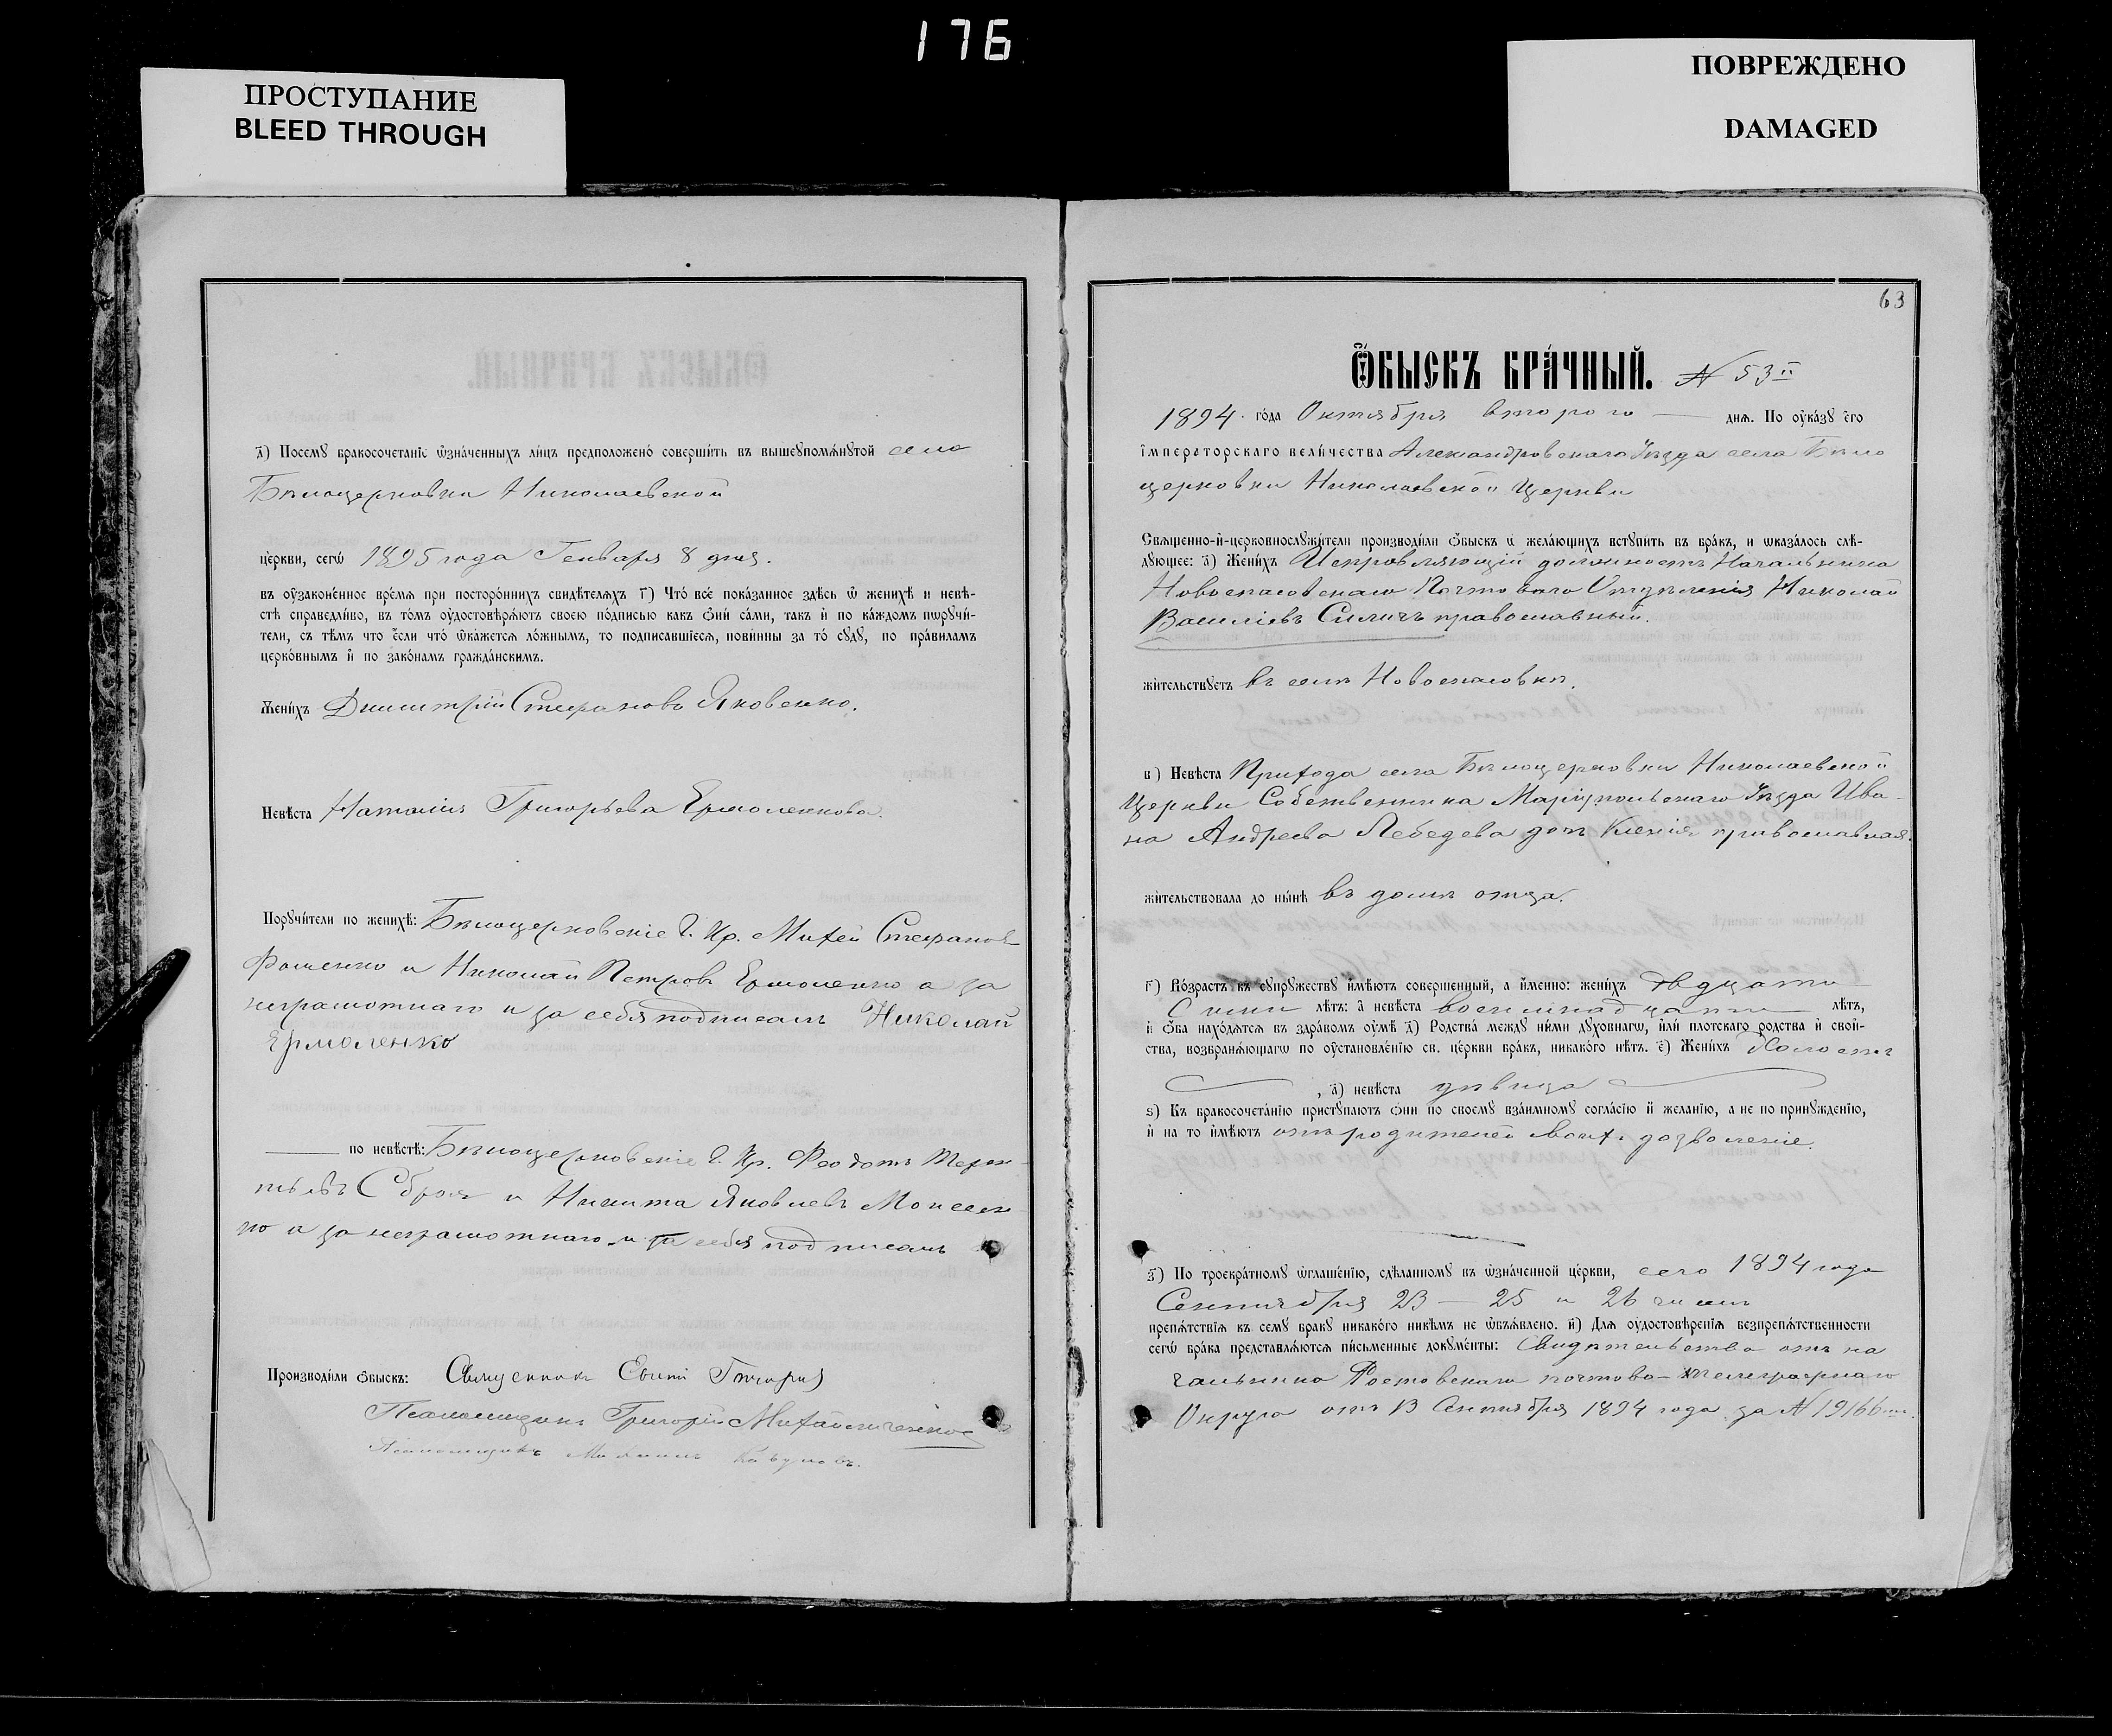 176
ПРОСТУПАНИЕ
BLEED THROUGH
ПОВРЕЖДЕНО
DAMAGED
а҃) Посемꙋ бракосочетанїе ѡ҆знáченныхъ ли́цъ предположенó соверши́ть въ вышеꙋпомѧ́нꙋтой села
Бѣлоцерковки Николаевской
це́ркви, сегѡ̀ 1895 года Генваря 8 дня.
въ оу҆законе́нное вре́мѧ при посторо́ннихъ свидѣ́телѧхъ г҃) Чтó всѐ пока́занное здѣ́сь ѡ҆ женихѣ̀ и невѣ-
стѣ справедли́во, въ то́мъ оу҆достовѣрѧ́ютъ своею по́дписью какъ ѻ҆ни́ са́ми, такъ и҆ по ка́ждомъ пѡрꙋчи́-
тели, съ тѣ́мъ что є҆сли что́ ѡ҆ка́жетсѧ ло́жнымъ, то подписавшїесѧ, пови́нны за то́ сꙋдꙋ̀, по пра́виламъ
церко́внымъ и҆ по зако́намъ гражда́нскимъ.
Жени́хъ Димитрій Стефановъ Яковенко.
Невѣ́ста Наталія Григорьева Ермоленкова.
Порꙋчи́тели по женихѣ̀: Бѣлоцерковскіе Г. Кр. Михей Стефановъ
Фоменко и Николай Петровъ Ермоленко а за
неграмотнаго и за себя подписалъ Николай
Ермоленко
по невѣ́стѣ: Бѣлоцерковскіе Г. Кр. Феодотъ Терен-
тьевъ Сброя и Никита Яковлевъ Моисеен-
ко а за неграмотнаго и за себя подписалъ
Производи́ли ѻ҆быскъ: Священникъ Евѳимій
Псаломщикъ Григорій
Псаломщикъ Михаилъ
63
Ѻ҆БЫСКЪ БРА́ЧНЫЙ. № 53й
1894 го́да Октября второго днѧ. По оу҆ка́зꙋ є҆го̀
і҆мператорскаго вели́чества Александровскаго Уѣзда села Бѣло
церковки Николаевской Церкви
Сващенно-и҆-церковнослꙋжи́тели производи́ли ѻ҆быскъ ѡ҆ жела́ющихъ встꙋпи́ть въ бра́къ, и ѡказа́лось слѣ́-
дꙋющее: а҃) Жени́хъ Исправляющій должность Начальника
Новоспасовскаго Почтоваго Отдѣленія Николай
Василіевъ Силичъ православный.
жи́тельствꙋетъ въ селѣ Новоспасовкѣ.
в҃) Невѣ́ста Прихода села Бѣлоцерковки Николаевской
Церкви Собственника Маріупольскаго Уѣзда Ива-
на Андреева Лебедева дочь Ксенія православная.
жи́тельствовала до ны́нѣ въ домѣ отца.
г҃) Во́зрастъ къ сꙋпрꙋ́жествꙋ и҆мѣ́ютъ соверше́нный, а и҆́менно: жени́хъ двадцати
лѣтъ: а҆ невѣ́ста восемнадцати лѣтъ,
и҆ ѻ҆ба нахо́дѧтсѧ въ здра́вомъ оу҆мѣ̀ д҃) Родства̀ междꙋ ни́ми дꙋхо́внагѡ, и҆лѝ пло́тскаго родства и҆ свой-
ства, возбранѧ́ющагѡ по оу҆становле́нїю св. це́ркви бра́къ, никако́го нѣтъ. є҃) Жени́хъ Холостъ
, а҃) невѣ́ста дѣвица
ѕ҃) Къ бракосочета́нїю пристꙋпа́ютъ ѻ҆ни по своемꙋ взаи́мномꙋ согла́сїю и҆ жела́нїю, а не по принꙋжде́нїю,
и҆ на то и҆мѣ́ютъ отъ родителей своихъ дозволеніе.
з҃) По троекра́тномꙋ ѡ҆глаше́нїю, сдѣ́ланномꙋ въ ѡ҆зна́ченной це́ркви, сего 1894 года
Сентября 23 — 25 и 26 чиселъ
препѧ́тствїѧ къ семꙋ бракꙋ никако́го никѣ́мъ не ѡ҆бъѧ́влено. и҃) Длѧ оу҆достовѣ́ренїѧ безпрепѧ́тственности
сегѡ̀ бра́ка представлѧ́ютсѧ пи́сьменные докꙋме́нты: Свидѣтельство отъ на
чальника Ростовскаго почтово-телеграфнаго
Округа отъ 13 Сентября 1894 года за № 19166